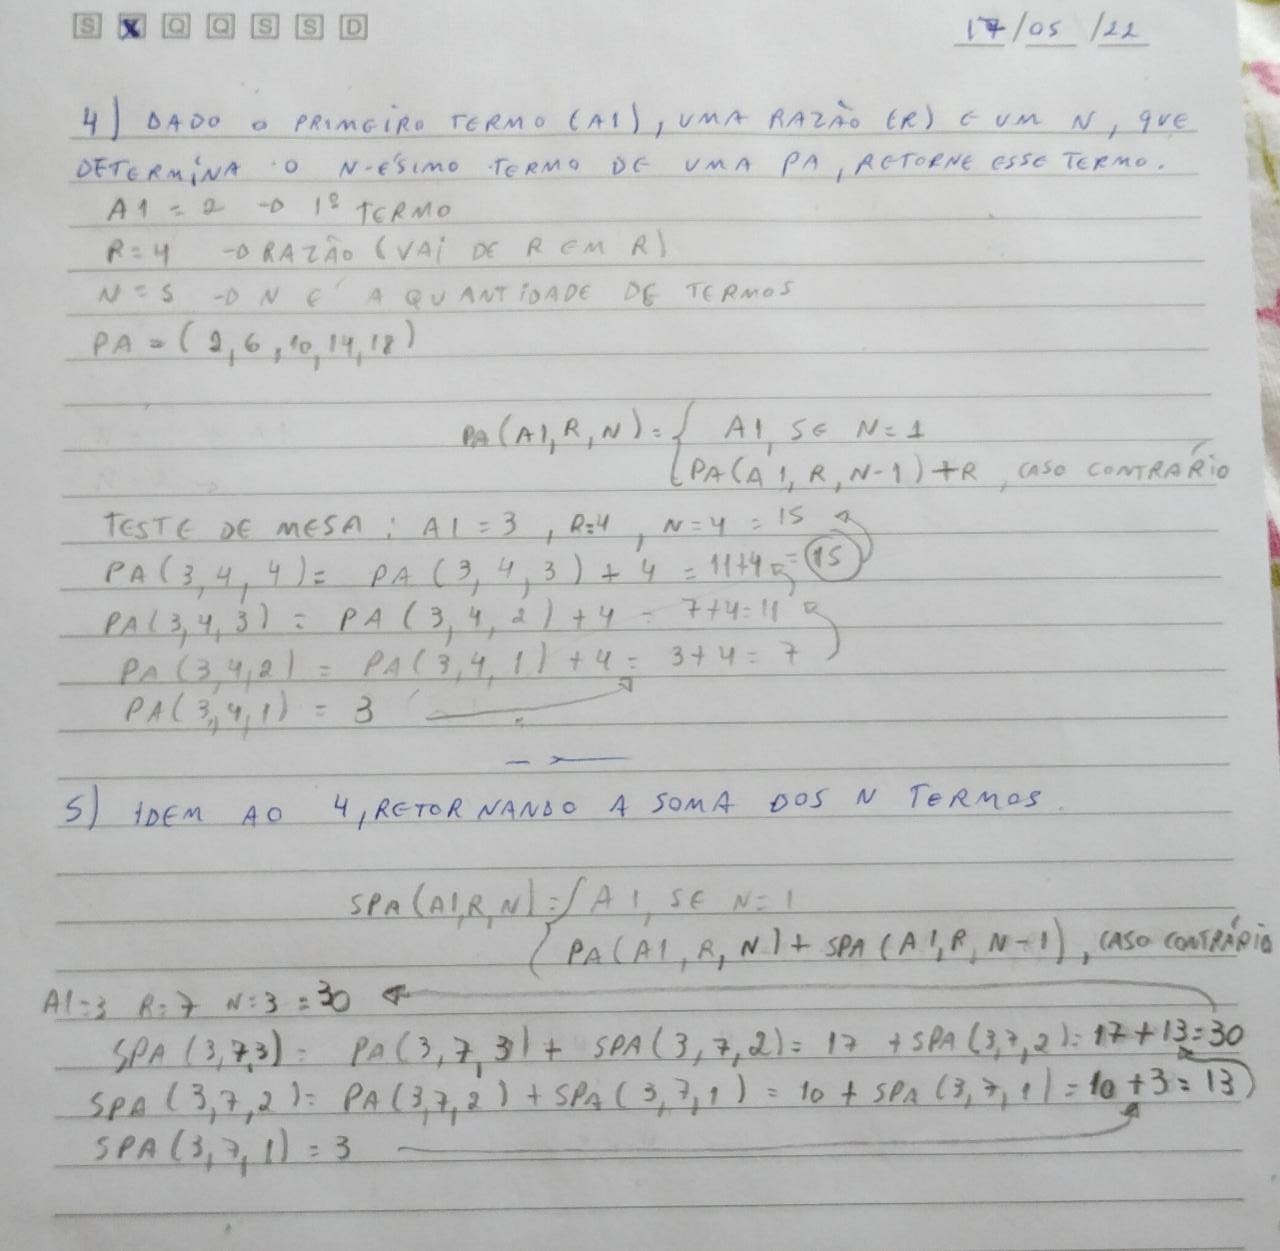 S X Q Q S S D 17/05/22
4) DADO O PRIMEIRO TERMO (A1), UMA RAZÃO (R) E UM N, QUE
DETERMINA O N-ÉSIMO TERMO DE UMA PA, RETORNE ESSE TERMO.
A1 = 2 → 1º TERMO
R = 4 → RAZÃO (VAI DE R EM R)
N = 5 → N É A QUANTIDADE DE TERMOS
PA = (2, 6, 10, 14, 18)
PA(A1, R, N) = { A1, SE N = 1
PA(A1, R, N-1) + R, CASO CONTRÁRIO
TESTE DE MESA: A1 = 3, R=4, N=4 = 15
PA(3, 4, 4) = PA(3, 4, 3) + 4 = 11+4 = 15
PA(3,4,3) = PA(3,4,2) + 4 = 7+4=11
PA(3,4,2) = PA(3,4,1) + 4 = 3+4 = 7
PA(3,4,1) = 3
5) IDEM AO 4, RETORNANDO A SOMA DOS N TERMOS.
SPA(A1,R,N) = { A1, SE N = 1
PA(A1, R, N) + SPA(A1, R, N-1), CASO CONTRÁRIO
A1=3 R=7 N=3 = 30
SPA(3,7,3) = PA(3,7,3) + SPA(3,7,2) = 17 + SPA(3,7,2) = 17+13=30
SPA(3,7,2) = PA(3,7,2) + SPA(3,7,1) = 10 + SPA(3,7,1) = 10+3=13
SPA(3,7,1) = 3